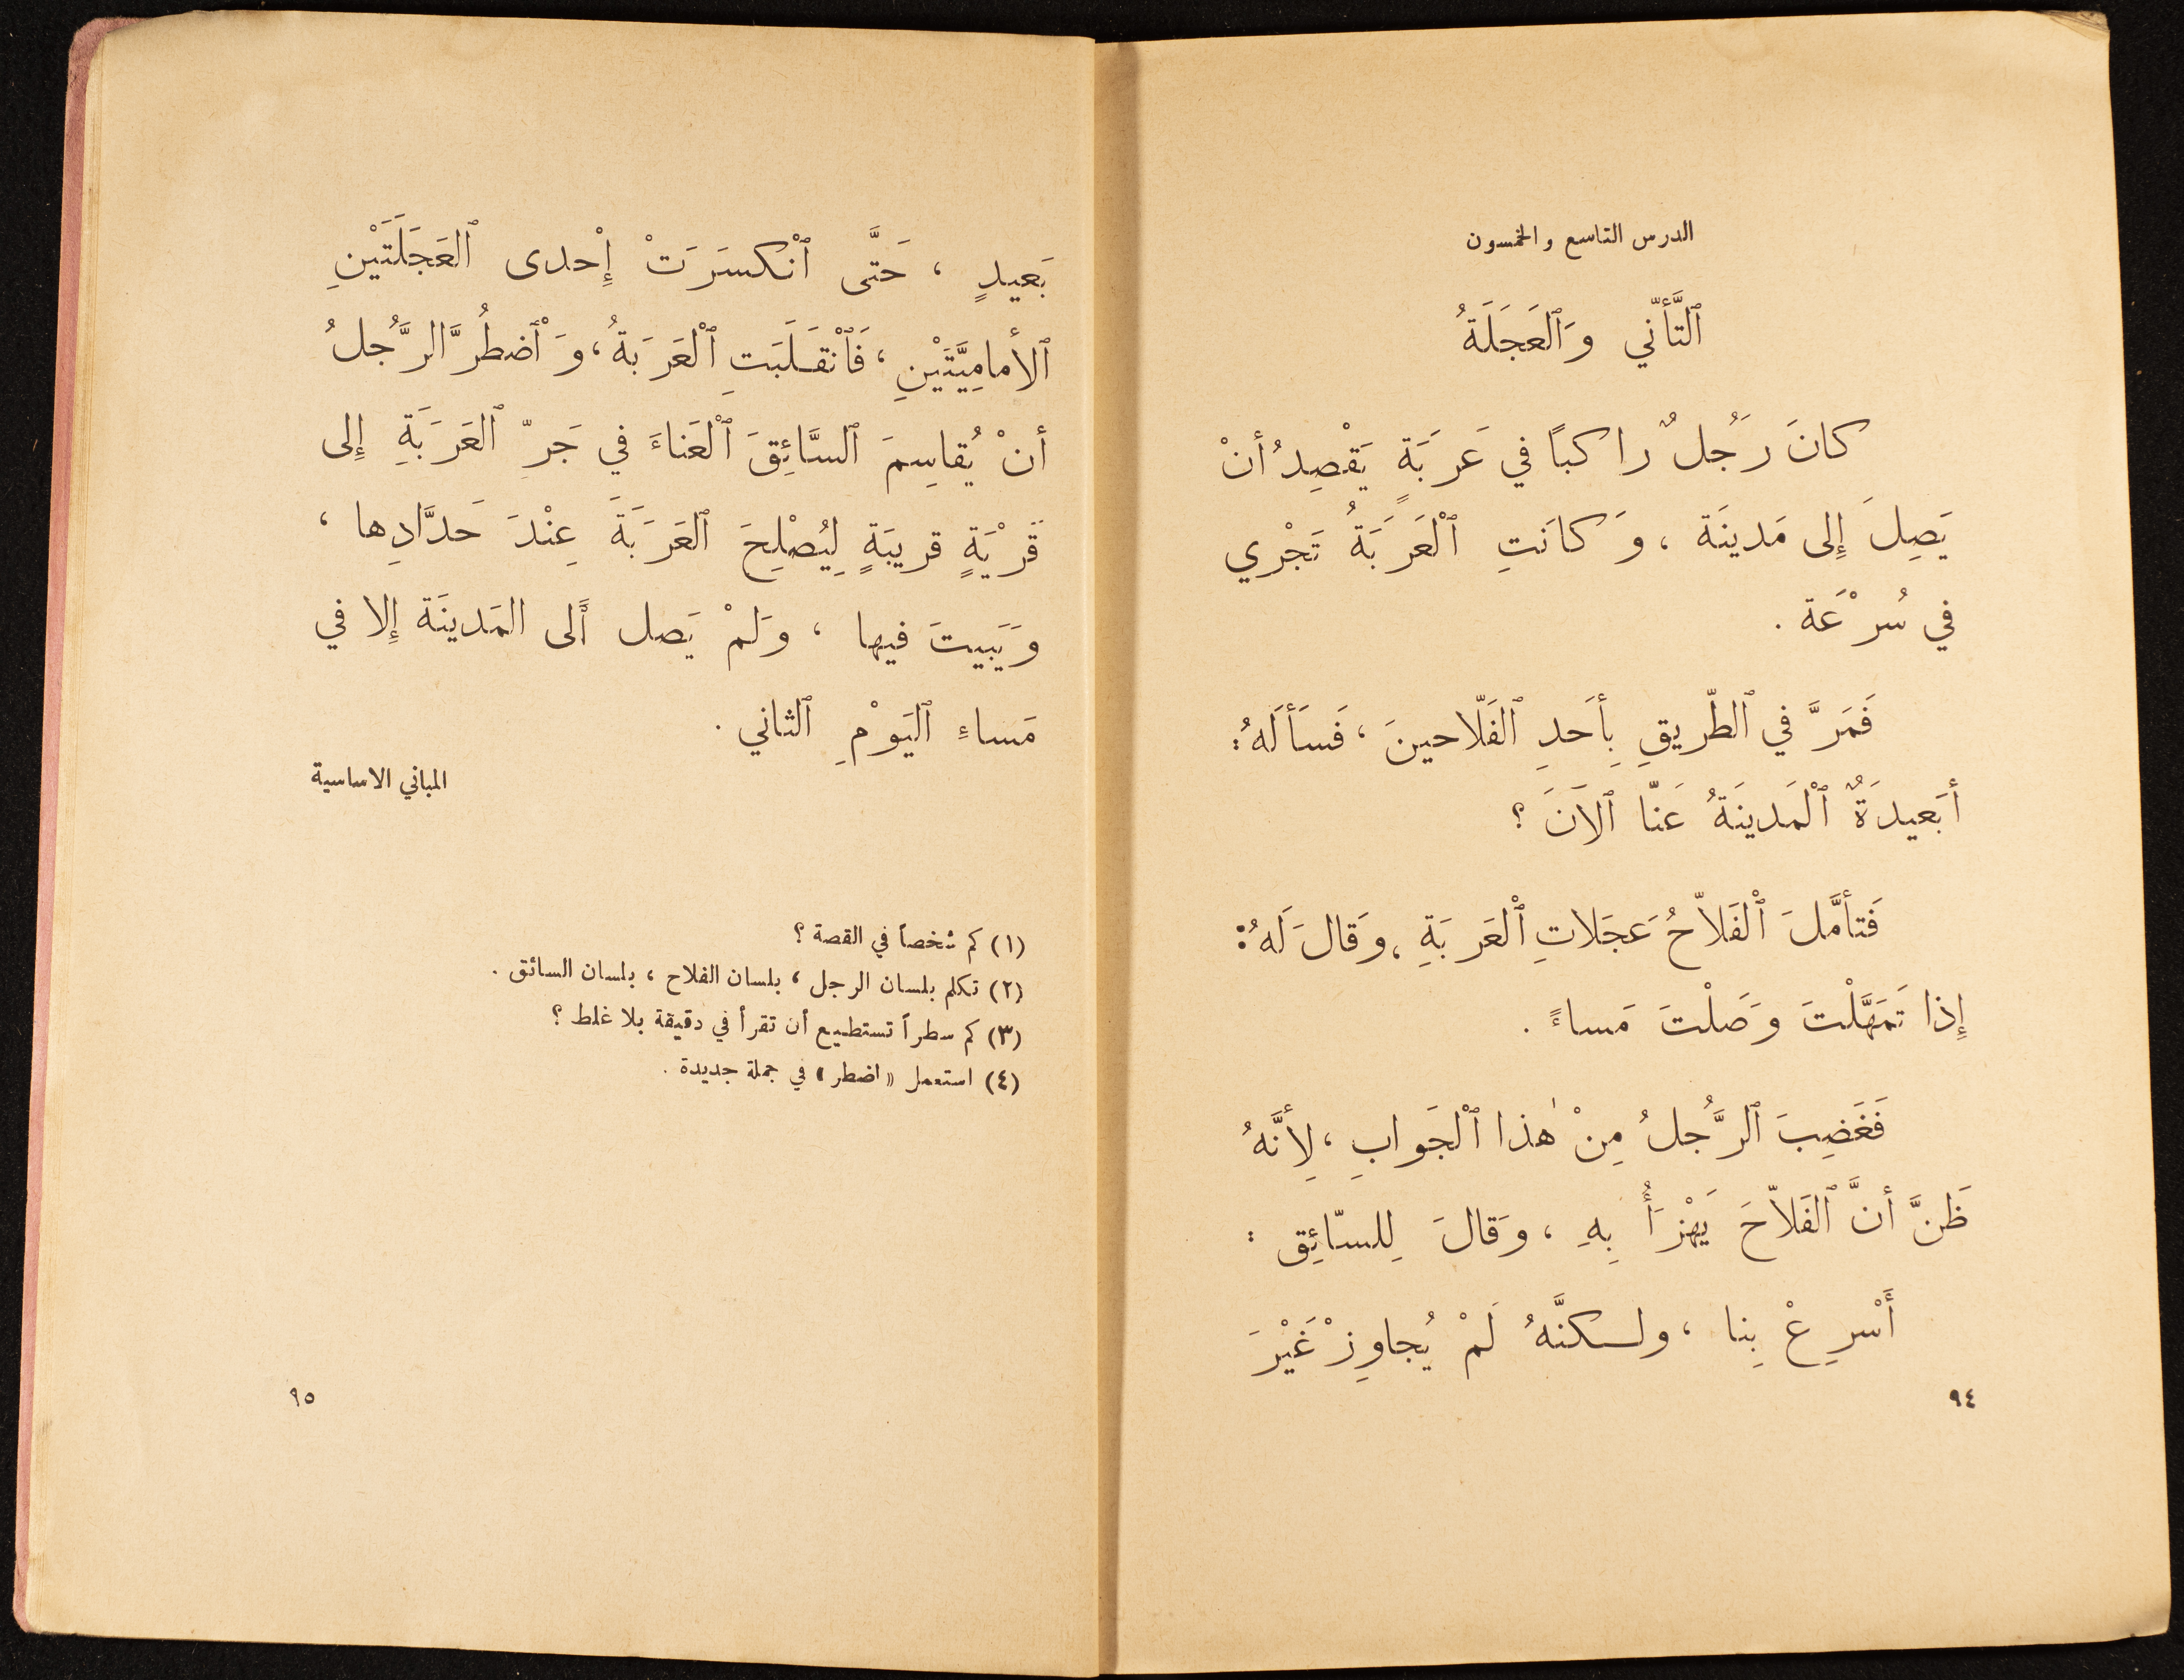 الدرس التاسع والخمسون
ٱلتَّأنّي وَٱلعَجَلَةُ
كانَ رَجُلٌ راكبًا في عَرَبَةٍ يَقْصِدُ أنْ
يَصِلَ إِلى مَدينَة ، وَكانَتِ ٱلْعَرَبَةُ تَجْري
في سُرْعَة .
فَمَرَّ في ٱلطّريقِ بِأحَدِ ٱلفَلّاحينَ ، فَسَألَهُ :
أبَعيدَةٌ ٱلْمَدينَةُ عَنّا ٱلآنَ ؟
فَتأمَّلَ ٱلْفَلاّحُ عَجَلاتِ ٱلْعَرَبَةِ ، وَقالَ لَهُ :
إِذا تَمَهَّلْتَ وَصَلْتَ مَساءً .
فَغَضِبَ ٱلرَّجُلُ مِنْ هٰذا ٱلْجَوابِ ، لِأنَّهُ
ظَنَّ أنَّ ٱلفَلاّحَ يَهْزَأُ بِهِ ، وَقالَ لِلسّائِق :
أَسْرِعْ بِنا ، ولكنَّهُ لَمْ يُجاوِزْ غَيْرَ
٩٤
بَعيدٍ ، حَتَّى ٱنْكسَرَتْ إِحْدى ٱلعَجَلَتَيْنِ
ٱلأمامِيَّتَيْنِ ، فَٱنْقَلَبَتِ ٱلْعَرَبَةُ ، وَٱضْطُرَّ الرَّجُلُ
أنْ يُقاسِمَ ٱلسَّائِقَ ٱلْعَناءَ في جَرِّ ٱلعَرَبَةِ إِلى
قَرْيَةٍ قريبَةٍ لِيُصْلِحَ ٱلعَرَبَةَ عِنْدَ حَدَّادِها ،
وَيَبيتَ فيها ، وَلَمْ يَصل أَلى المَدينَة إِلا في
مَساءِ ٱليَوْمِ ٱلثاني .
المباني الاساسية
(١) كم شخصاً في القصة ؟
(٢) تكلم بلسان الرجل ، بلسان الفلاح ، بلسان السائق .
(٣) كم سطراً تستطيع أن تقرأ في دقيقة بلا غلط ؟
(٤) استعمل « اضطر » في جملة جديدة .
٩٥